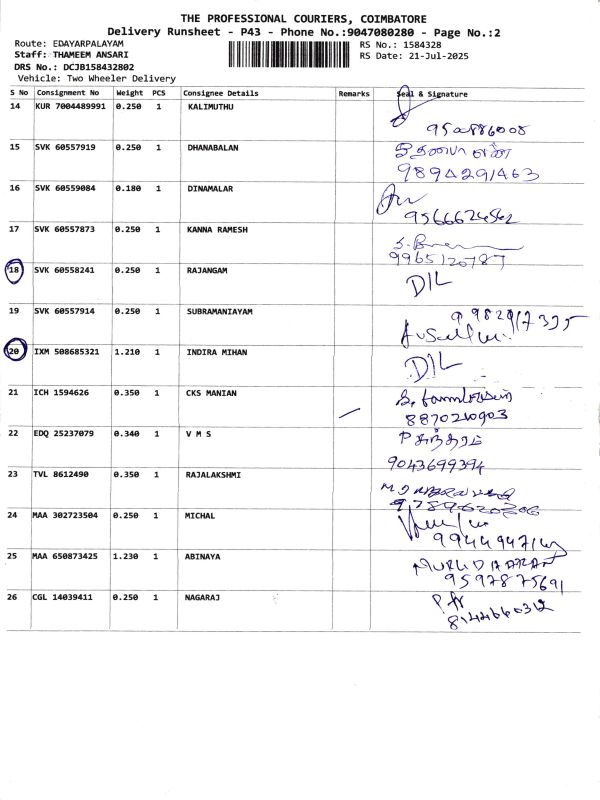 THE PROFESSIONAL COURIERS, COIMBATORE
Delivery Runsheet - P43 - Phone No.:9047080280 - Page No.:2
Route: EDAYARPALAYAM RS No.: 1584328
Staff: THAMEEM ANSARI RS Date: 21-Jul-2025
DRS No.: DCJB158432802
Vehicle: Two Wheeler Delivery
S No Consignment No Weight PCS Consignee Details Remarks Seal & Signature
14 KUR 7004489991 0.250 1 KALIMUTHU
15 SVK 60557919 0.250 1 DHANABALAN
9894291463
16 SVK 60559084 0.180 1 DINAMALAR
17 SVK 60557873 0.250 1 KANNA RAMESH
9965120787
18 SVK 60558241 0.250 1 RAJANGAM D/L
19 SVK 60557914 0.250 1 SUBRAMANIAYAM
20 IXM 508685321 1.210 1 INDIRA MIHAN D/L
21 ICH 1594626 0.350 1 CKS MANIAN
8870210903
22 EDQ 25237079 0.340 1 V M S
9043699394
23 TVL 8612490 0.350 1 RAJALAKSHMI
24 MAA 302723504 0.250 1 MICHAL
25 MAA 650873425 1.230 1 ABINAYA
9597875691
26 CGL 14039411 0.250 1 NAGARAJ
8144660312